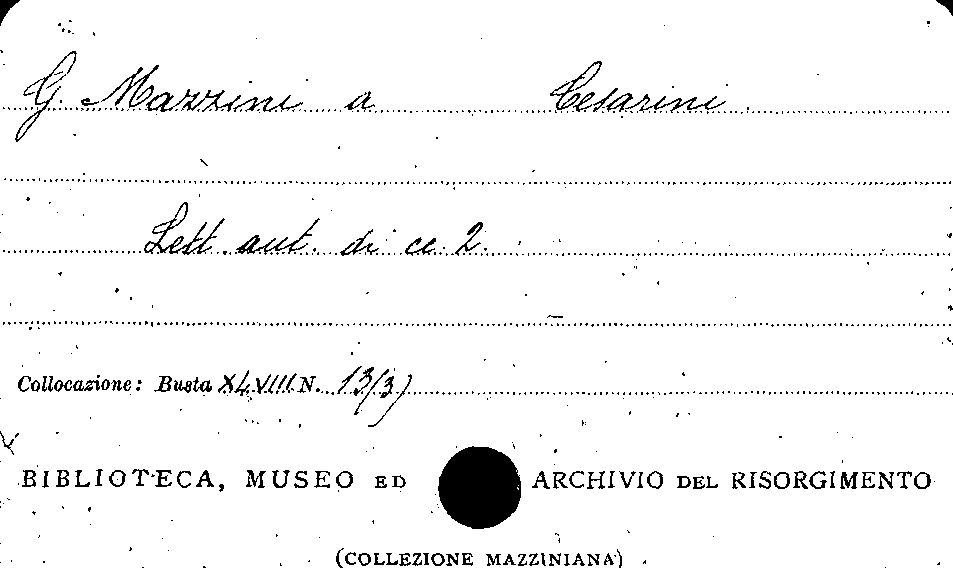 G. Mazzini a Cesarini
Lett. aut. di cc. 2.
Collocazione: Busta XLVIII N. 13(3)
BIBLIOTECA, MUSEO ED ARCHIVIO DEL RISORGIMENTO
(COLLEZIONE MAZZINIANA)